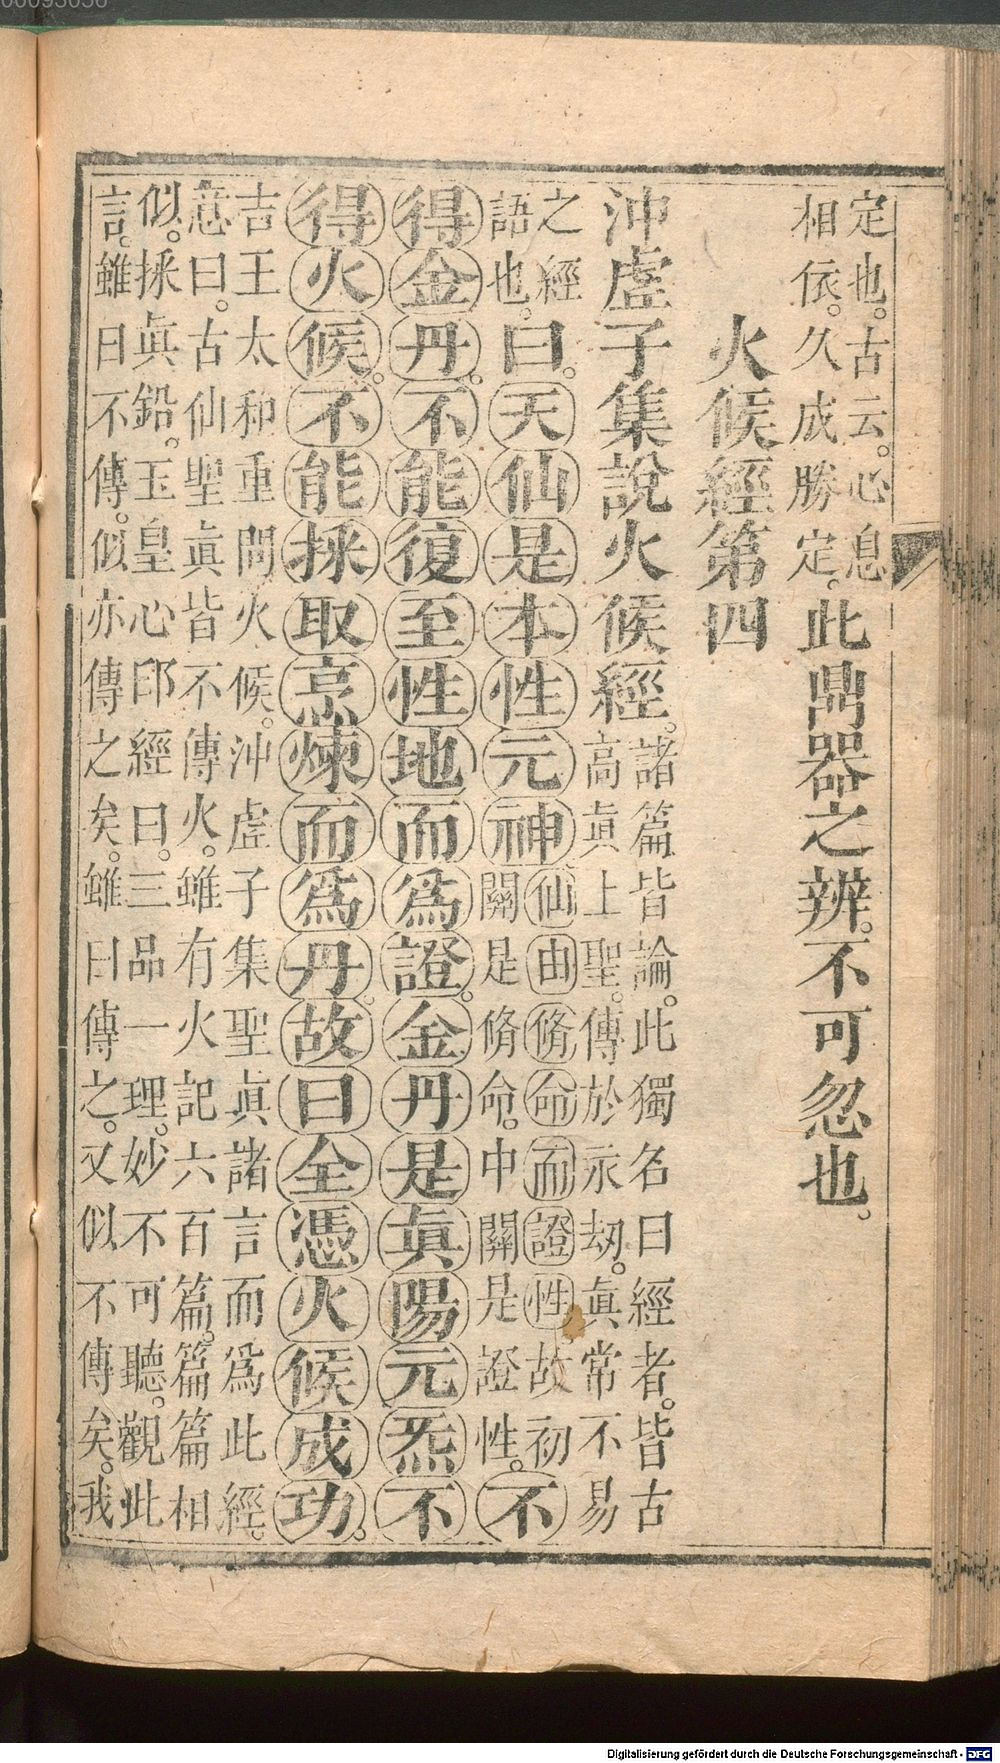 00093056
定也。古云。心息
相依。久成勝定。此鼎器之辨。不可忽也。
火候經第四
沖虛子集說火候經。
諸篇皆論。此獨名曰經者。皆古
高眞上聖。傳於永劫。眞常不易
之經
語也。
曰。天仙是本性元神
仙由脩命而證性。故初
關是脩命。中關是證性。
不
得金丹。不能復至性地而爲證。金丹是眞陽元炁不
得火候。不能採取烹煉而爲丹。故曰全憑火候成功。
吉王太和重問火候。沖虛子集聖眞諸言而爲此經。
意曰。古仙聖眞皆不傳火。雖有火記六百篇。篇篇相
似。採眞鉛。玉皇心印經曰。三品一理。妙不可聽。觀此
言。雖曰不傳。似亦傳之矣。雖曰傳之。又似不傳矣。我
Digitalisierung gefördert durch die Deutsche Forschungsgemeinschaft - DFG